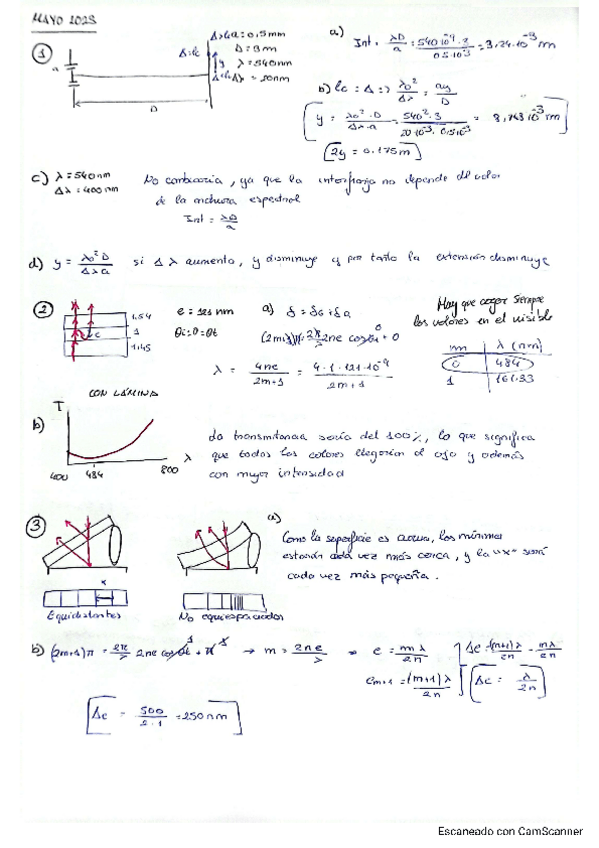 MAYO 2023
1
a = 0,5mm
D = 3m
λ = 540nm
Δλ = 20nm
D
a) Int. = λD/a = 540·10⁻⁹·3/0,5·10⁻³ = 3,24·10⁻³ m
b) lc = Δ => λ₀²/Δλ = ay/D
y = λ₀²·D/Δλ·a = 540²·3/20·10⁻³·0,5·10⁻³ =
2y = 0.175m
c) λ = 540nm
Δλ = 400nm
No cambiaría, ya que la interfranja no depende del valor
de la anchura espectral
Int = λD/a
d) y = λ₀²D/Δλa si Δλ aumenta, y disminuye y por tanto la extensión disminuye
2
1.54
1
1.45
e = 121 nm
θi = 0 = θt
a) δ = δG + δa
(2m+1)π = 2π/λ 2ne cosθt + 0
λ = 4ne/2m+1 = 4·1·121·10⁻⁹/2m+1
Hay que coger siempre
los valores en el visible
m λ (nm)
0 484
1 161.33
CON LÁMINA
b) T
λ
400 484 800
La transmitancia sería del 100%, lo que significa
que todos los colores llegarían al ojo y además
con mayor intensidad
3
x
Equidistantes
No equiespaciados
a)
Como la superficie es curva, los mínimos
estarán cada vez más cerca, y la "x" será
cada vez más pequeña.
b) (2m+1)π = 2π/λ 2ne cosθt + π → m = 2ne/λ → e = mλ/2n
eₘ₊₁ = (m+1)λ/2n
Δe = (m+1)λ/2n - mλ/2n
Δe = λ/2n
Δe = 500/2·1 = 250nm
Escaneado con CamScanner